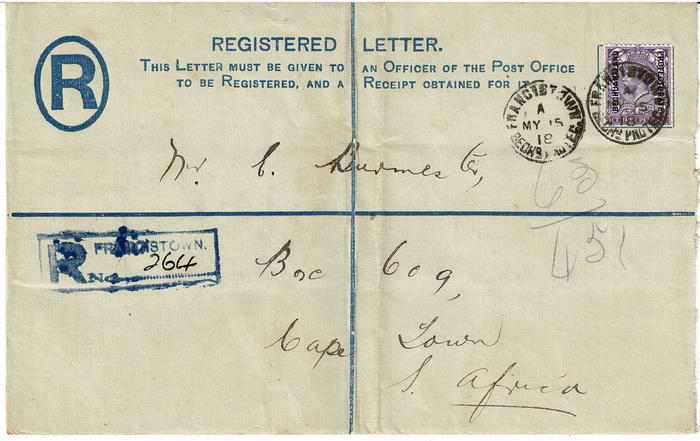 R
REGISTERED LETTER.
THIS LETTER MUST BE GIVEN TO AN OFFICER OF THE POST OFFICE
TO BE REGISTERED, AND A RECEIPT OBTAINED FOR IT.
FRANCISTOWN
A
MY 15
18
BECHD PROTEC.
BECHUANALAND PROTECTORATE
Mr C. Burmester,
R FRANCISTOWN.
No. 264
Box 609,
Cape Town
S. Africa
451